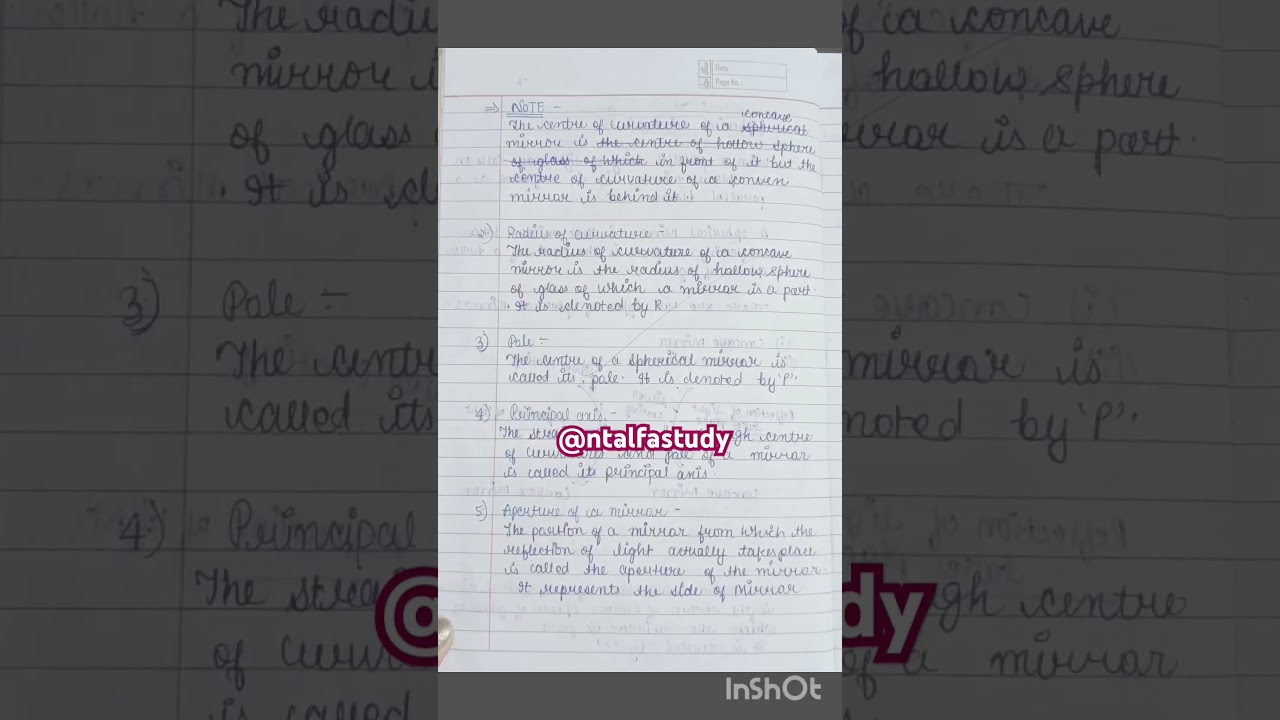 Date
Page No.
⇒ NOTE -
concave
The centre of curvature of a spherical
mirror is the centre of hollow sphere
of glass of which in front of it but the
centre of curvature of a conven
mirror is behind it.
2) Radius of curvature :-
The radius of curvature of a concave
mirror is the radius of hollow sphere
of glass of which a mirror is a part.
It is denoted by R.
3) Pole :-
The centre of a spherical mirror is
called its pole. It is denoted by 'P'.
4) Principal axis. -
The gh centre
@ntalfastudy
of a mirror
is called its principal axis.
5) Aperture of a mirror -
The portion of a mirror from which the
reflection of light actually takes place
is called the aperture of the mirror.
It represents the side of mirror
InShOt